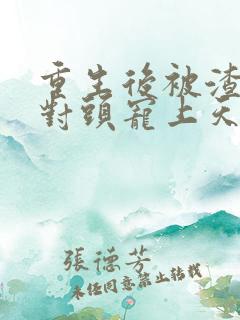 重生後被渣
對頭寵上天
張德芳
未經同意禁止轉載